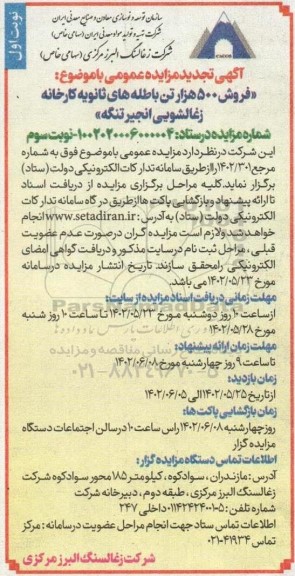 سازمان توسعه و نوسازی معادن و صنایع معدنی ایران
شرکت تهیه و تولید مواد معدنی ایران (سهامی خاص)
شرکت زغالسنگ البرز مرکزی (سهامی خاص)
نوبت اول
آگهی تجدید مزایده عمومی با موضوع:
«فروش ۵۰۰ هزار تن باطله های ثانویه کارخانه
زغالشویی انجیر تنگه»
شماره مزایده در ستاد: ۱۰۰۲۰۲۰۰۰۶۰۰۰۰۰۴-نوبت سوم
این شرکت در نظر دارد مزایده عمومی با موضوع فوق به شماره
مرجع ۱۴۰۲/۳۰۱ را از طریق سامانه تدارکات الکترونیکی دولت (ستاد)
برگزار نماید. کلیه مراحل برگزاری مزایده از دریافت اسناد
تا ارائه پیشنهاد و بازگشایی پاکت ها از طریق درگاه سامانه تدارکات
الکترونیکی دولت (ستاد) به آدرس: www.setadiran.ir انجام
خواهد شد و لازم است مزایده گران در صورت عدم عضویت
قبلی، مراحل ثبت نام در سایت مذکور و دریافت گواهی امضای
الکترونیکی را محقق سازند. تاریخ انتشار مزایده در سامانه
مورخ ۱۴۰۲/۰۵/۲۳ می باشد.
مهلت زمانی دریافت اسناد مزایده از سایت:
از ساعت ۱۰ روز دوشنبه مورخ ۱۴۰۲/۰۵/۲۳ تا ساعت ۱۰ روز شنبه
مورخ ۱۴۰۲/۰۵/۲۸
مهلت زمان ارائه پیشنهاد:
تا ساعت ۹ روز چهارشنبه مورخ ۱۴۰۲/۰۶/۰۸
زمان بازدید:
از تاریخ ۱۴۰۲/۰۵/۲۵ الی ۱۴۰۲/۰۶/۰۵
زمان بازگشایی پاکت ها:
روز چهارشنبه ۱۴۰۲/۰۶/۰۸ راس ساعت ۱۰ در سالن اجتماعات دستگاه
مزایده گزار
اطلاعات تماس دستگاه مزایده گزار:
آدرس: مازندران، سوادکوه، کیلومتر ۱۸۵ محور سوادکوه شرکت
زغالسنگ البرز مرکزی، طبقه دوم، دبیرخانه شرکت
شماره تلفن: ۵-۰۱۱۴۲۴۲۴۰۰۱ داخلی ۲۴۷
اطلاعات تماس ستاد جهت انجام مراحل عضویت در سامانه: مرکز
تماس ۴۱۹۳۴-۰۲۱
شرکت زغالسنگ البرز مرکزی